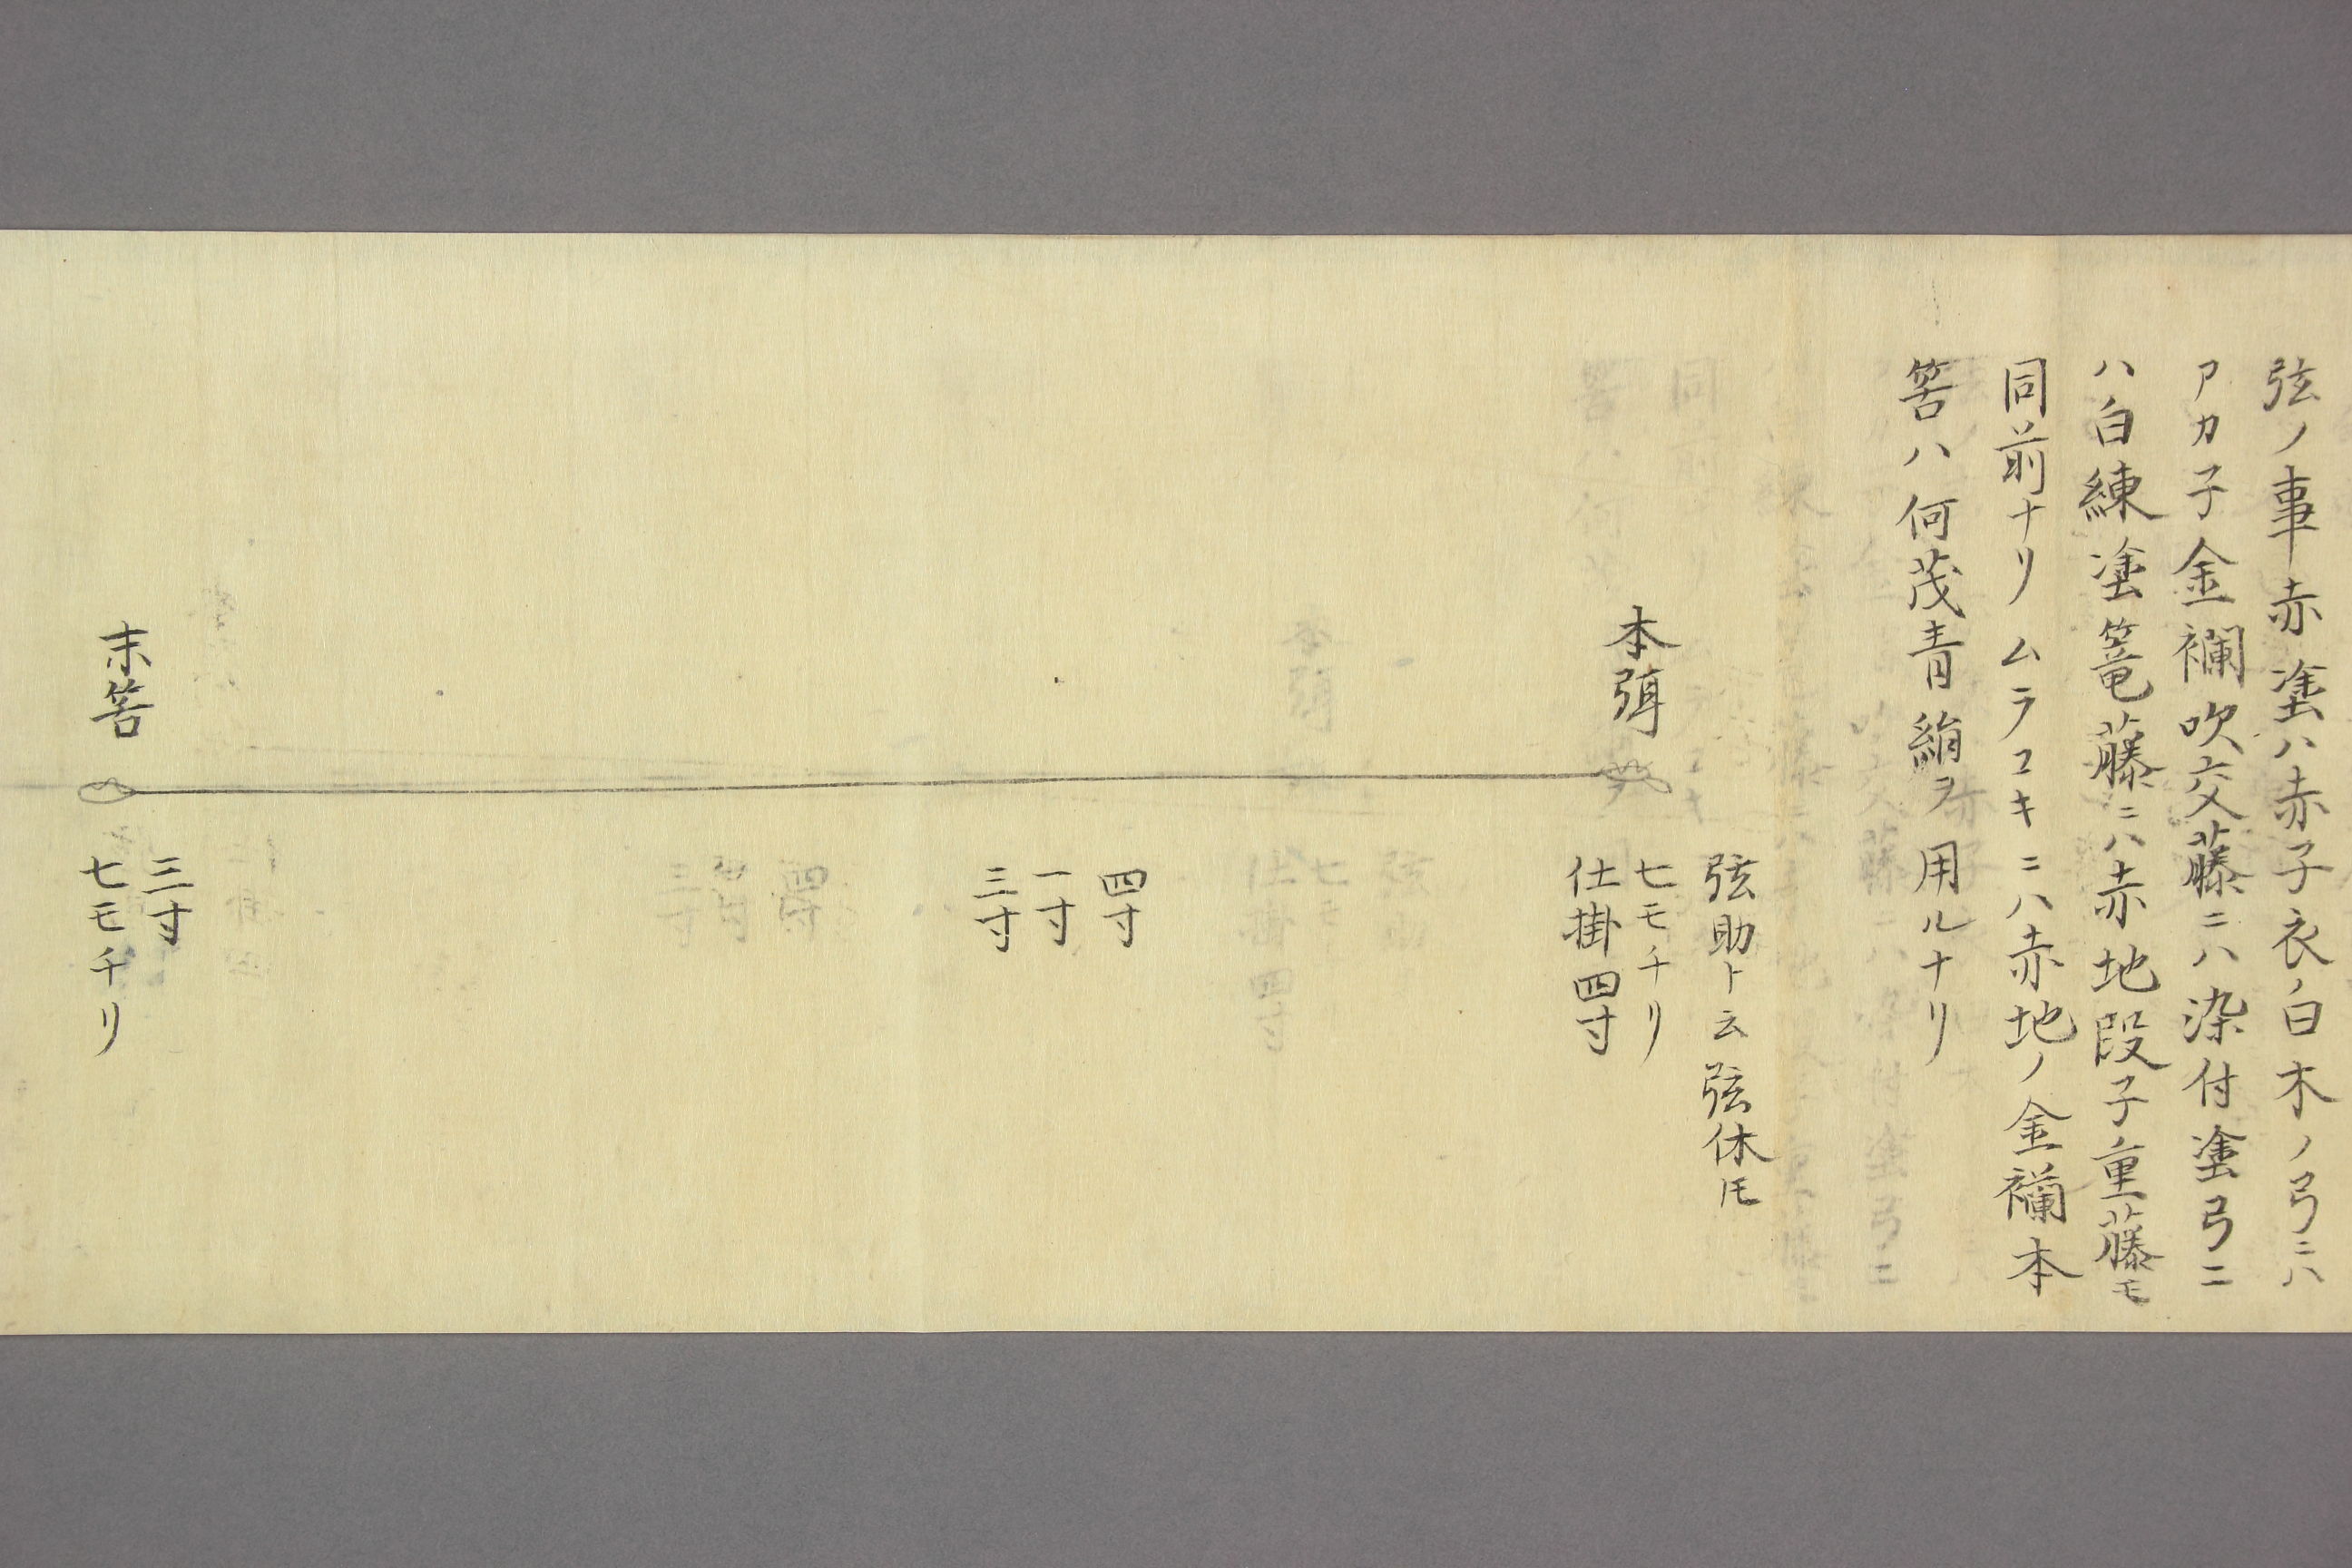 弦ノ事赤塗ハ赤子衣ノ白木ノ弓ニハ
アカ子金襴吹交藤ニハ染付塗弓ニ
ハ白練塗篭藤ニハ赤地段子重藤モ
同前ナリムラコキニハ赤地ノ金襴本
筈ハ何茂青絹ヲ用ルナリ
本弭
弦助ト云弦休トモ
七モチリ
仕掛四寸
四寸
一寸
三寸
末筈
三寸
七モチリ